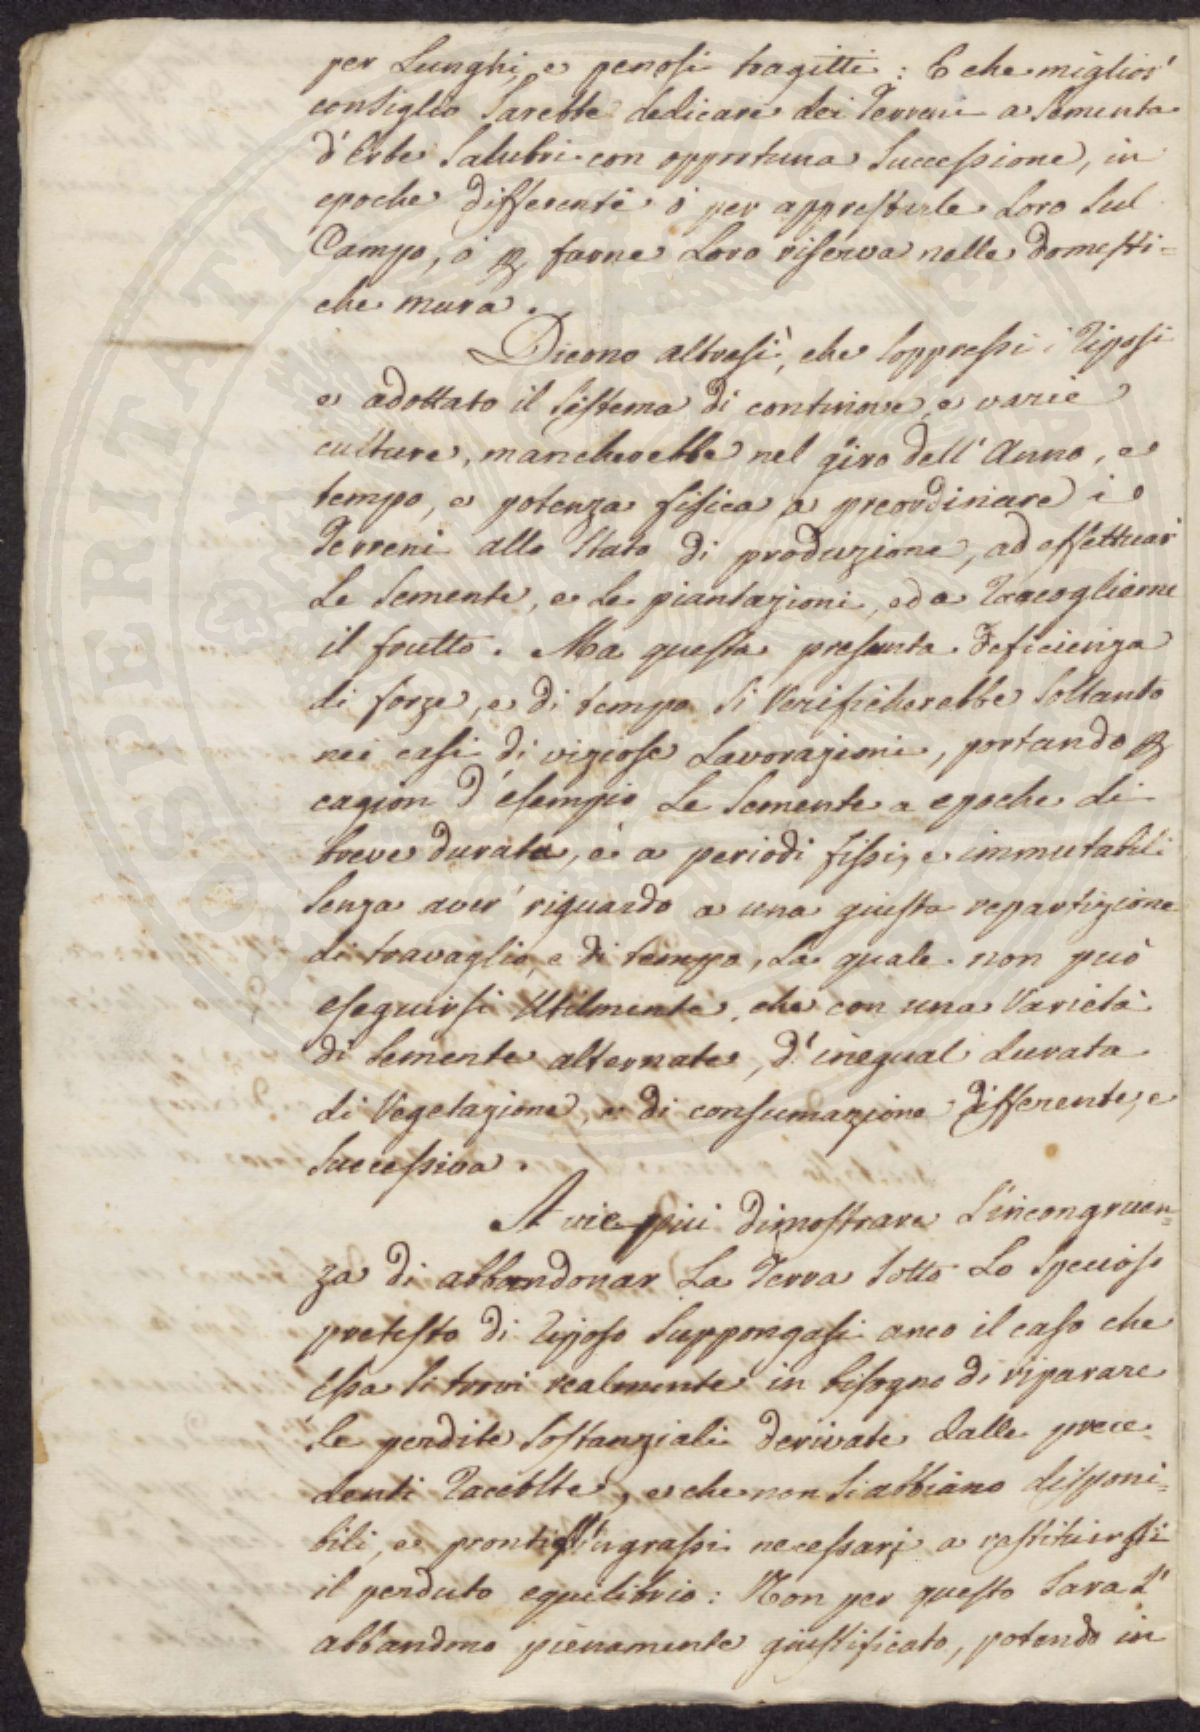 per Lunghi, e penosi tragitti: E che miglior'
consiglio Sarebbe dedicare dei Terreni a Sementa
d'Erbe Salubri con opportuna Successione, in
epoche differenti ò per apprestarle Loro Sul
Campo, ò p farne Loro riserva nelle domesti=
che mura.
Dicono altresì, che Soppressi i Riposi
e adottato il Sistema di continove, e varie
culture, mancherebbe nel giro dell'Anno, e
tempo, e potenza fisica a preordinare i
Terreni allo Stato di produzione, ad effettuar
Le Semente, e Le piantazioni, ed a Raccoglierne
il frutto. Ma questa presunta deficienza
di forze, e di tempo Si Verificherebbe Soltanto
nei casi di viziose Lavorazioni, portando p
cagion d'esempio Le Semente a epoche di
breve durata, e a periodi fissi, e immutabili
Senza aver' riguardo a una giusta repartizione
di travaglio, e di tempo, La quale non può
eseguirsi Utilmente, che con una Varietà
di Semente alternate, d'inegual durata
di Vegetazione, e di consumazione differente, e
Successiva.
A vie più dimostrare L'incongruen=
za di abbandonar La Terra Sotto Lo Specioso
pretesto di Riposo Suppongasi anco il caso che
essa Si trovi realmente in bisogno di riparare
Le perdite Sostanziali derivate dalle prece=
denti Raccolte, e che non Si abbiano disponi=
bili, e pronti gl'ingrassi necessarj a restituirsi
il perduto equilibrio: Non per questo Sarà L'
abbandono pienamente giustificato, potendo in
SPERITATI